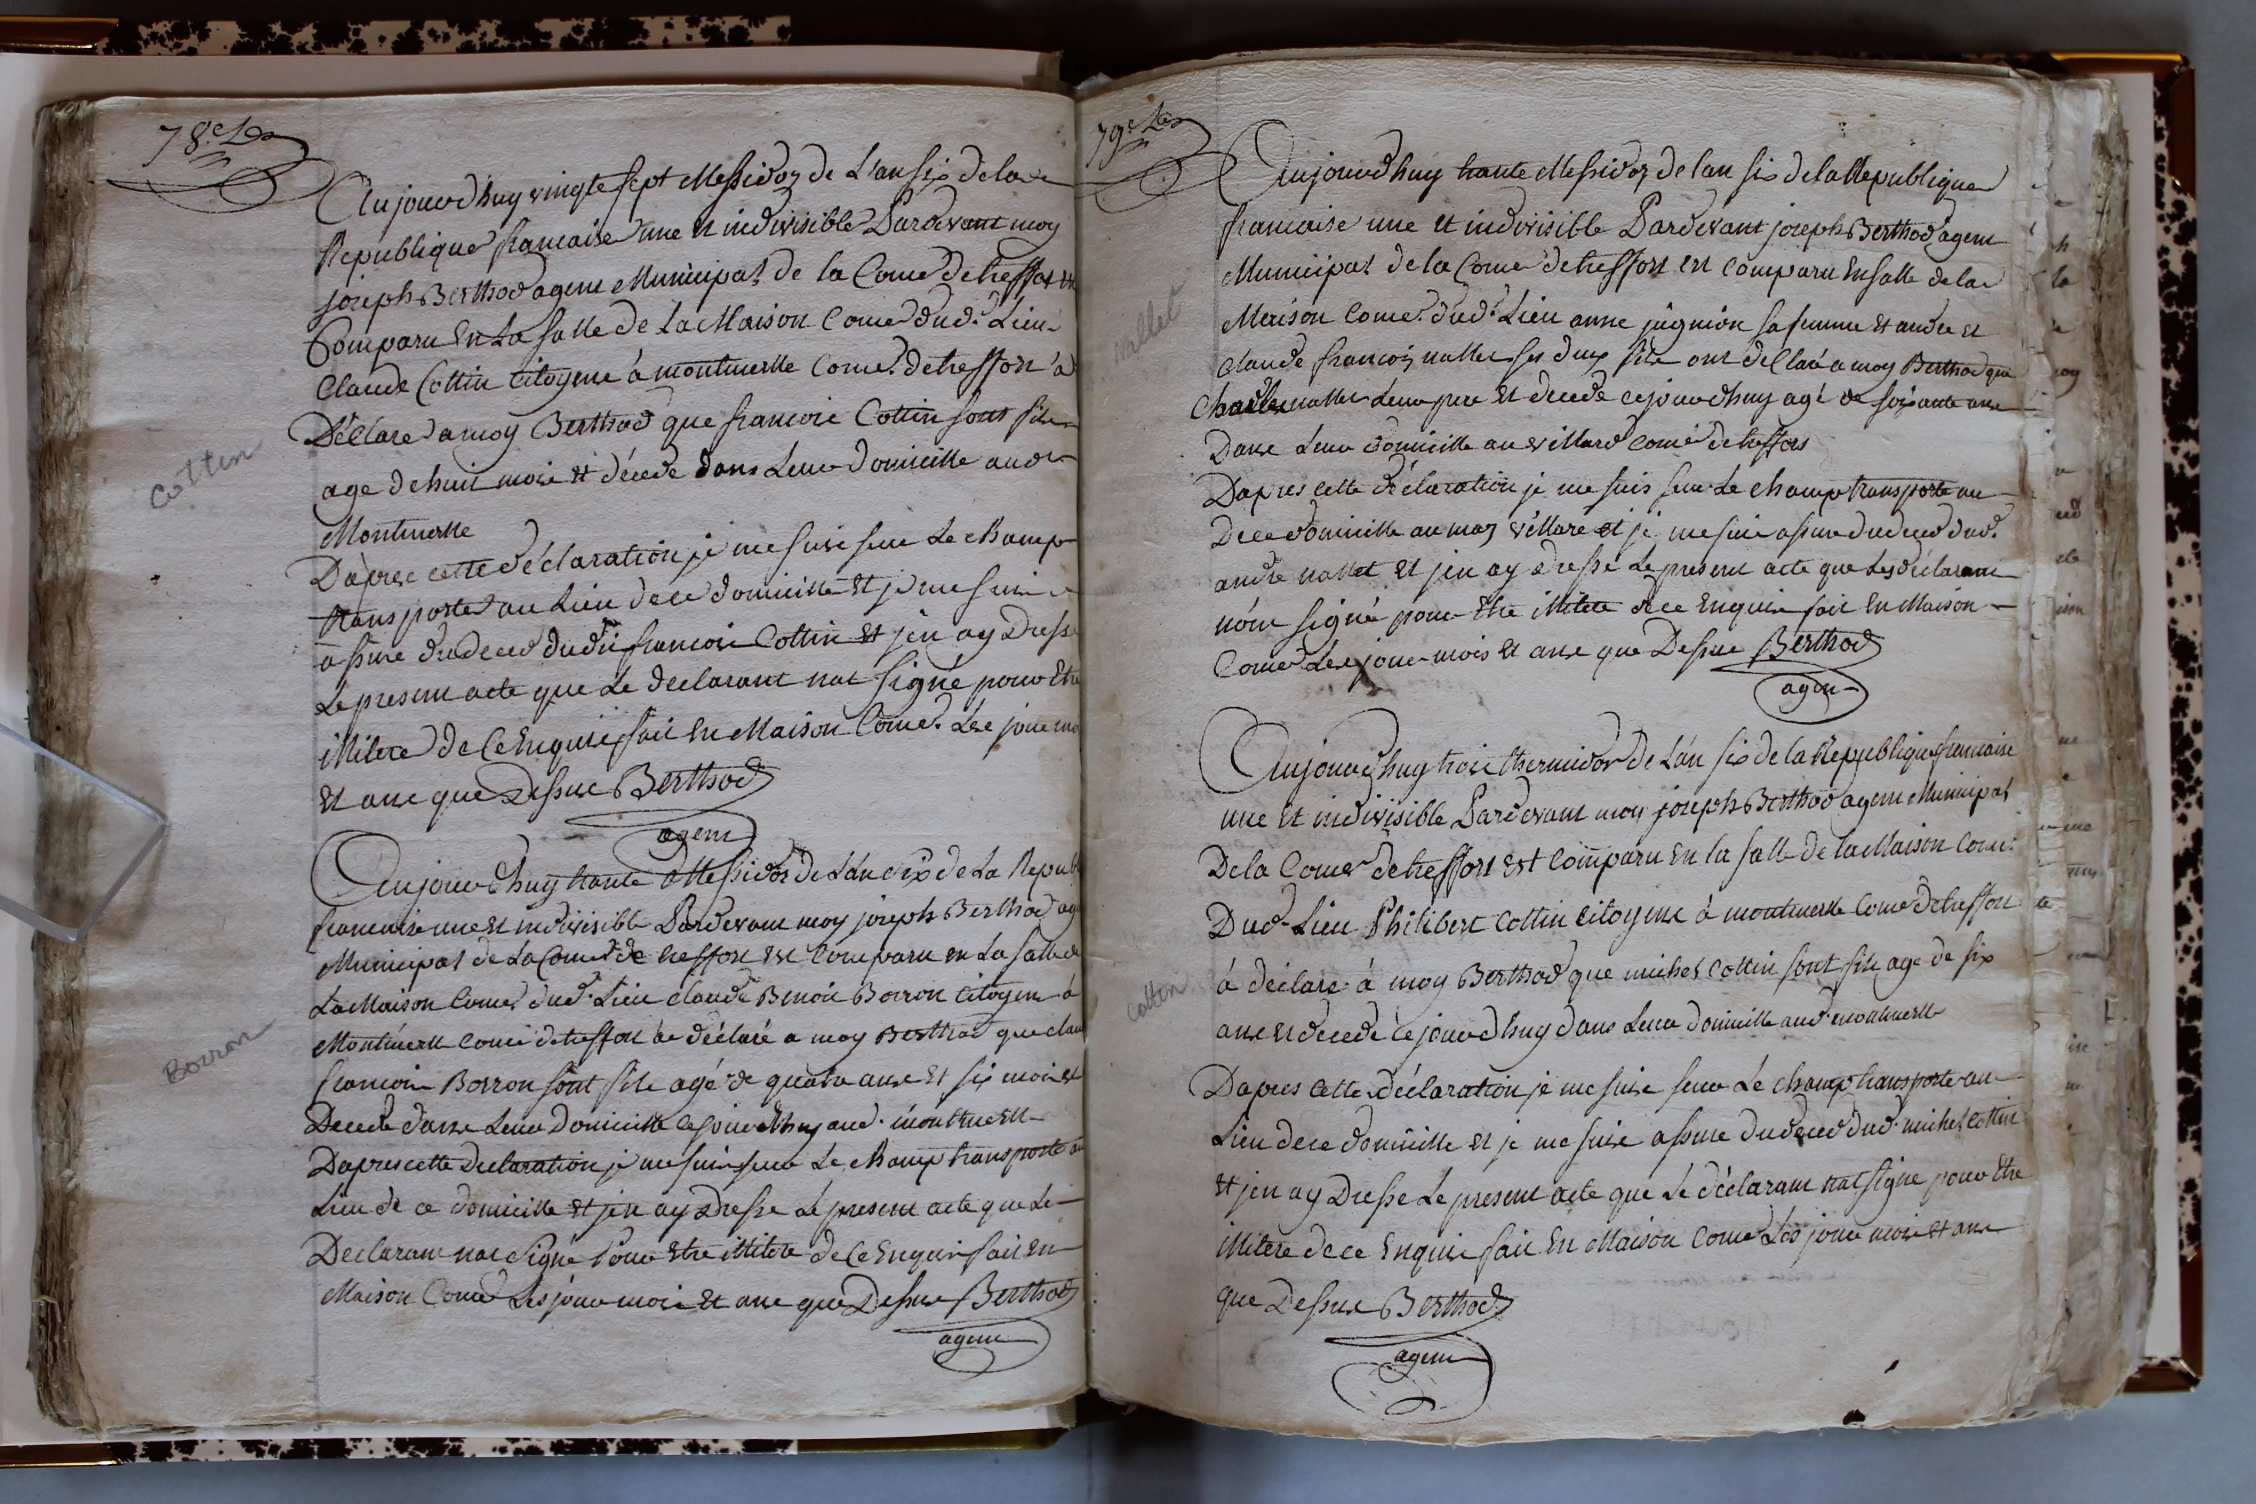 78e
Aujourdhuy vingt sept Messidor de L'an six de la
Republique francaise une et indivisible Pardevant moy
joseph Berthod agent Municipal de la Come de treffort est
Comparu En La salle de La Maison Come dud. Lieu
Claude Cottin Citoyene à montmerle Come. de treffort à
Déclare a moy Berthod que francois Cottin sont fils
age de huit mois et décede dans Leur domicille aud
Montmerle
Dapres cette déclaration je me suis sur Le champ
transporte au Lieu de ce domicille et je me suis
assure du deced dudi francois Cottin et jen ay Dressé
Le present acte que Le declarant nat signé pour Etre
illitere de Ce Enquis fait En Maison Come. Les jour mo
et ans que Dessus Berthod
agent
Cottin
Aujourdhuy trante Messidor de L'an six de La Republ
francaise une et indivisible Pardevant moy joseph Berthod age
Municipal de La Come de treffort est Comparu en La salle de
La Maison Come dud. Lieu claude Benoit Borron Citoyen à
Montmerle Come de treffort à déclaré a moy Berthod que clau
francois Borron sont fils agé de quatre ans et six mois et
Decede dans Leur Domicille ce jourdhuy aud. montmerle
Dapres cette declaration je me suis sur Le champ transporté au
Lieu de ce domicille et jen ay dresse Le present acte que Le
Declarant nat Signé Pour Etre illitere de Ce Enquis fait en
Maison Come Les jour mois et ans que Dessus Berthod
agent
Borron
79e
Aujourdhuy trante Messidor de lan six de la Republique
francaise une et indivisible Pardevant joseph Berthod agent
Municipal de la Come de treffort est comparu En salle de la
Maison Come. dud. Lieu anne jugnion sa femme et andre et
Claude francois nallet ses deux fils ont declaré a moy Berthod que
Charles nallet Leur pere et decede cejourdhuy agé de soixante ans
Dans Leur domicille au villard Come de treffort
Dapres cette déclaration je me suis sur Le champ transporte au
De ce domicille au mas villare et je me suis assure du deced dud.
andre nallet et jen ay dressé Le present acte que Les déclarant
nont signé pour Etre illitere de ce Enquis fait En Maison
Come Les jour mois et ans que Dessus Berthod
agent
nallet
Aujourdhuy trois thermidor de L'an six de la Republique francaise
une et indivisible Pardevant moy joseph Berthod agent Municipal
De la Come de treffort est Comparu En la salle de la Maison Come
Dud. Lieu Philibert Cottin Citoyene à montmerle Come de treffort
à déclare à moy Berthod que michel Cottin sont fils age de six
ans et decede ce jourdhuy dans Leur domicille aud. montmerle
Dapres Cette déclaration je me suis sur Le champ transporte au
Lieu de ce domicille et je me suis assure du deced dud. michel Cottin
et jen ay Dresse Le present acte que Le déclarant nat signe pour Etre
illitere de ce Enquis fait En Maison Come Les jour mois et ans
que Dessus Berthod
agent
Cottin